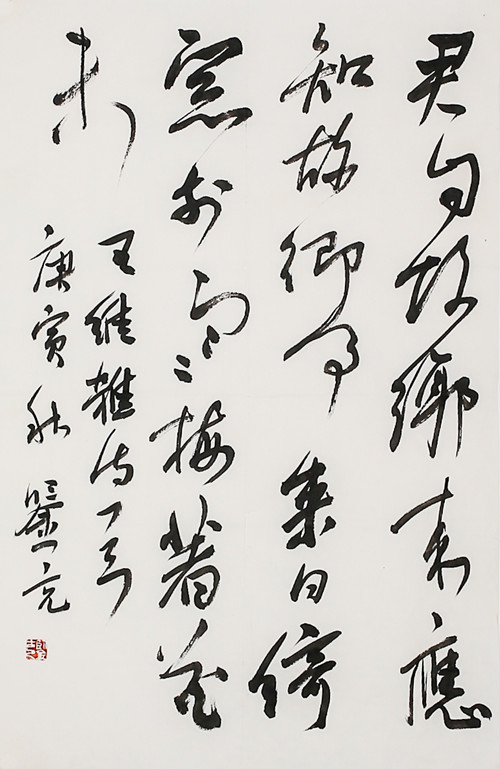 君自故鄉来應
知故鄉事來日綺
窓前寒梅著花
未
王維雜詩一首
庚寅秋亮